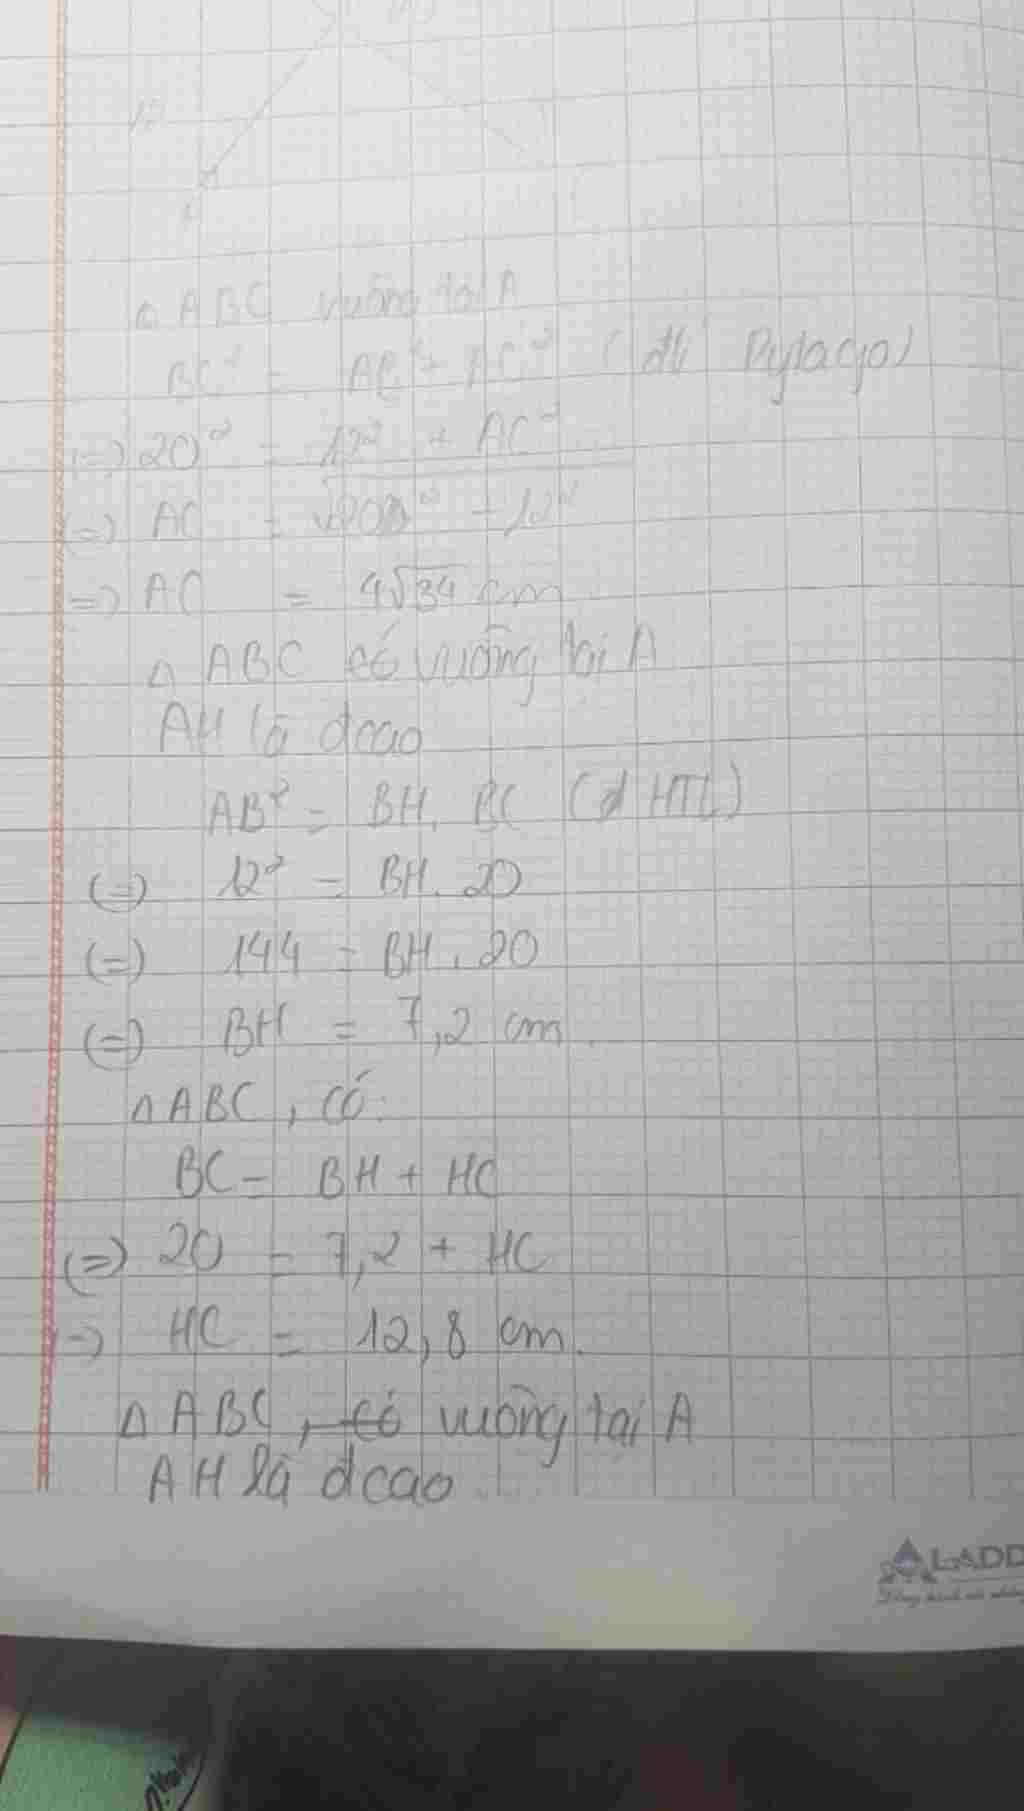 12
△ ABC vuông tại A
BC² = AB² + AC² (đlí Pytago)
(=) 20² = 12² + AC²
(=) AC = √20² - 12²
=) AC = 4√34 cm
△ ABC có vuông tại A
AH là đcao
AB² = BH. BC (d HTL)
(=) 12² = BH. 20
(=) 144 = BH. 20
(=) BH = 7,2 cm.
△ ABC, có:
BC = BH + HC
(=) 20 = 7,2 + HC
=) HC = 12,8 cm.
△ ABC, có vuông tại A
AH là đcao
LADD